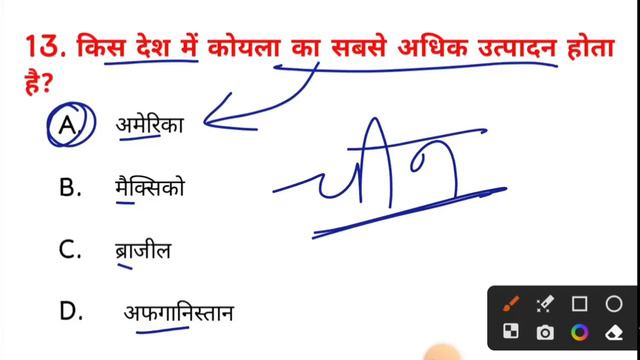 13. किस देश में कोयला का सबसे अधिक उत्पादन होता
है?
A. अमेरिका
B. मैक्सिको
चीन
C. ब्राजील
D. अफगानिस्तान